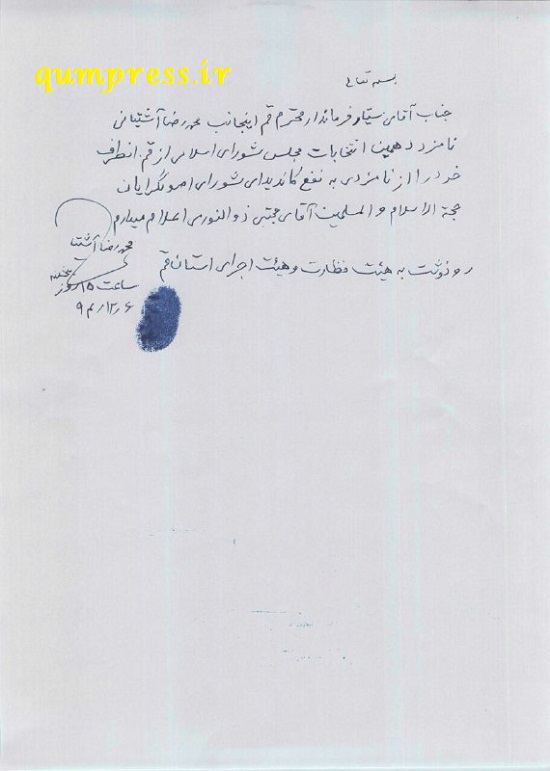 qumpress.ir
بسمه تعالی
جناب آقای سیار فرماندار محترم قم اینجانب محمدرضا آشتیانی
نامزد دهمین انتخابات مجلس شورای اسلامی از قم. انصراف
خود را از نامزدی به نفع کاندیدای شورای اصولگرایان
حجة الاسلام و المسلمین آقای مجتبی ذوالنوری اعلام میدارم
محمدرضا آشتیانی
رونوشت به هیئت نظارت و هیئت اجرای استان قم
ساعت ۱۵ روز